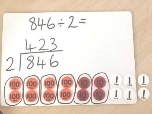 846÷2=
423
2 846
100 100 100 100 10 10 1 1 1
100 100 100 100 10 10 1 1 1